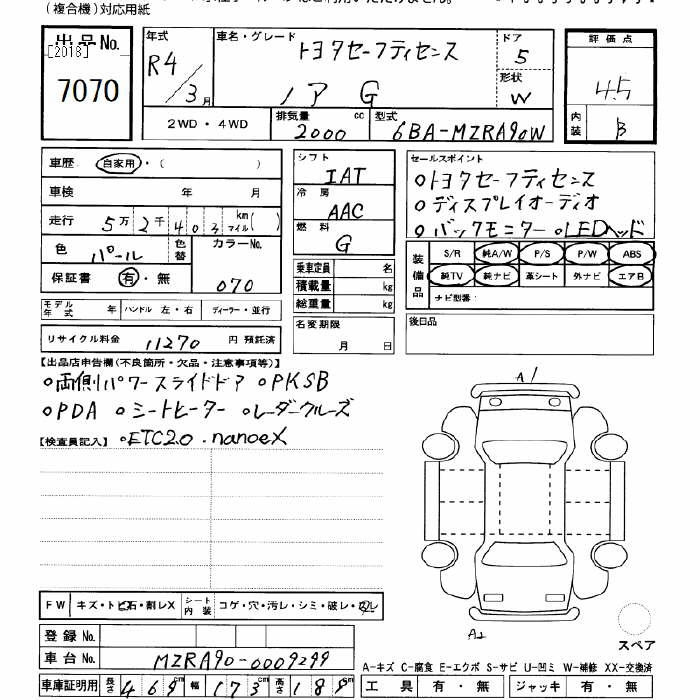 (複合機)対応用紙
出品No.
[2018]
7070
年式 R4/3月
車名・グレード トヨタセーフティセンス
ノア G
ドア 5
形状 W
2WD・4WD
排気量 2000 cc
型式 6BA-MZRA90W
評価点
4.5
内装 B
車歴 自家用・( )
車検 年 月
走行 5万2千403 km マイル( )
色 パール 色替 カラーNo. 070
保証書 有・無
モデル年式 年 ハンドル 左・右 ディーラー・並行
リサイクル料金 11270 円 預託済
シフト IAT
冷房 AAC
燃料 G
乗車定員 名
積載量 kg
総重量 kg
名変期限
月 日
セールスポイント
○トヨタセーフティセンス
○ディスプレイオーディオ
○バックモニター ○LEDヘッド
装備品 S/R 純A/W P/S P/W ABS
純TV 純ナビ 革シート 外ナビ エアB
ナビ型番:
後日品
【出品店申告欄(不良箇所・欠品・注意事項等)】
○両側パワースライドドア ○PKSB
○PDA ○シートヒーター ○レーダークルーズ
【検査員記入】 ○ETC2.0 ・nanoeX
A1
A2
スペア
FW キズ・トビ石・割レX シート内装 コゲ・穴・汚レ・シミ・破レ・
登録No.
車台No. MZRA90-0009299
車庫証明用 長さ 469cm 幅 173cm 高さ 189cm
A-キズ C-腐食 E-エクボ S-サビ U-凹ミ W-補修 XX-交換済
工具 有・無 ジャッキ 有・無